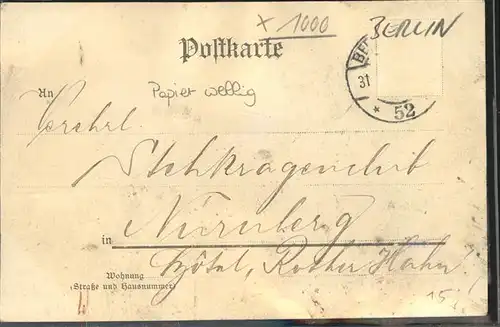 x 1000
BERLIN
Postkarte
BE
31
* 52
Papier wellig
An
Verehrl.
Stehkragenclub
Nürnberg
in
Hôtel, Rother Hahn!
Wohnung
(Straße und Hausnummer)
15,